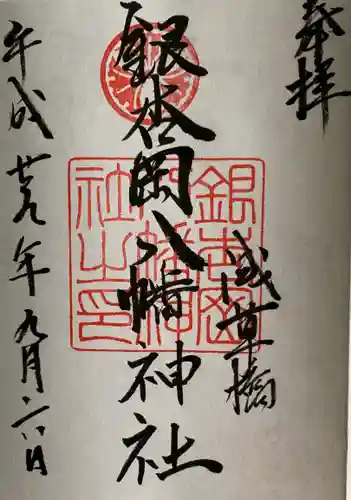 奉拝
浅草橋
銀杏岡八幡神社
平成廿九年九月二八日
銀杏岡八幡神社之印